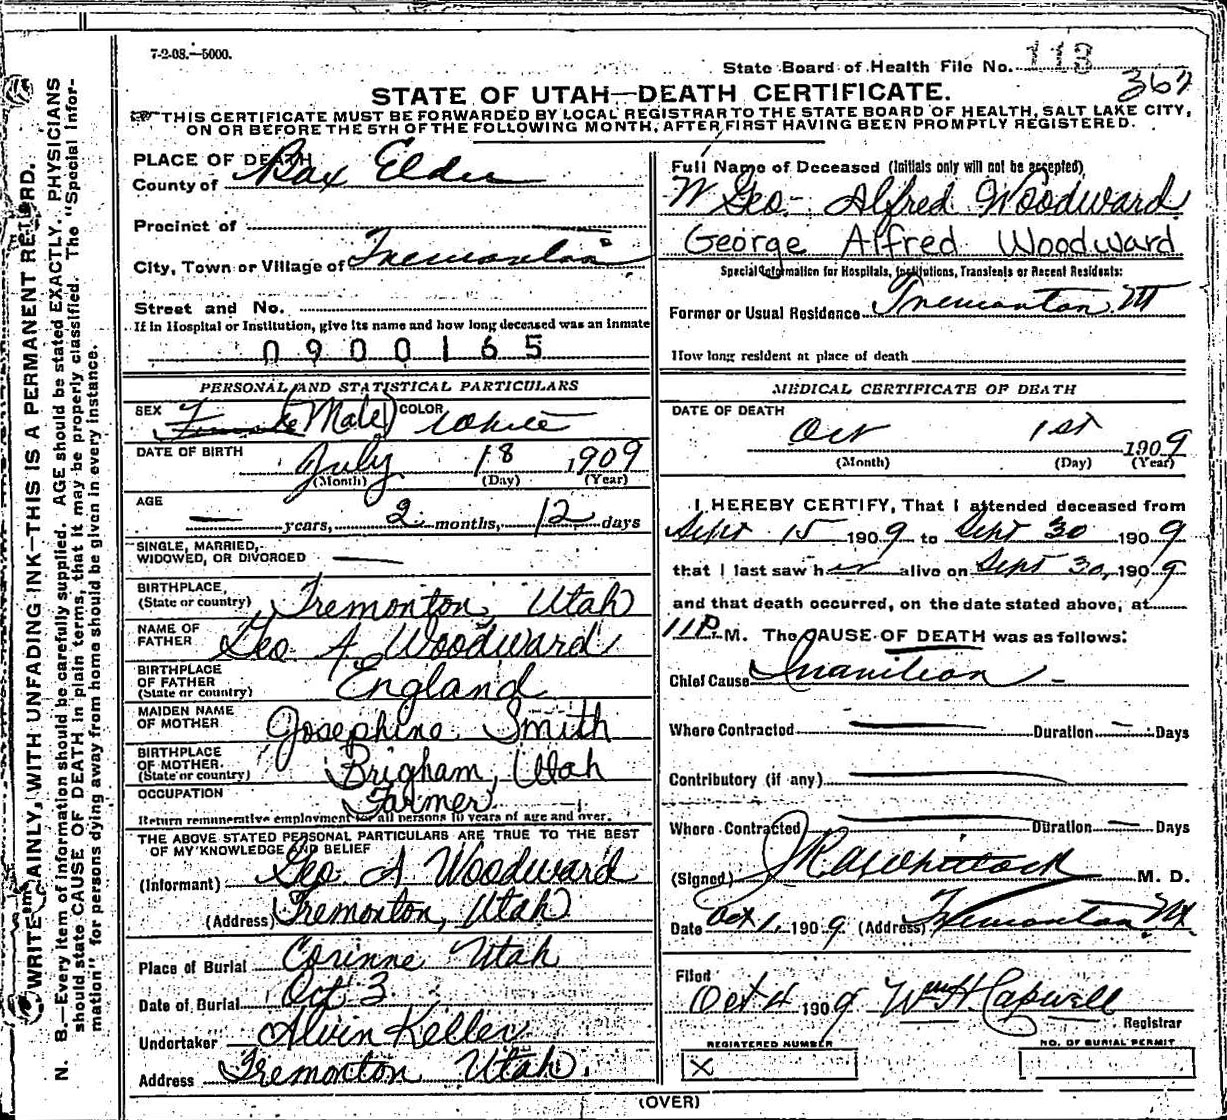 7-2-08.—5000.
State Board of Health File No. 113
367
STATE OF UTAH—DEATH CERTIFICATE.
THIS CERTIFICATE MUST BE FORWARDED BY LOCAL REGISTRAR TO THE STATE BOARD OF HEALTH, SALT LAKE CITY,
ON OR BEFORE THE 5TH OF THE FOLLOWING MONTH, AFTER FIRST HAVING BEEN PROMPTLY REGISTERED.
WRITE PLAINLY, WITH UNFADING INK—THIS IS A PERMANENT RECORD.
N. B.—Every item of information should be carefully supplied. AGE should be stated EXACTLY. PHYSICIANS
should state CAUSE OF DEATH in plain terms, that it may be properly classified. The "Special Infor-
mation" for persons dying away from home should be given in every instance.
PLACE OF DEATH
County of Box Elder
Precinct of
City, Town or Village of Tremonton
Street and No.
If in Hospital or Institution, give its name and how long deceased was an inmate
0900165
PERSONAL AND STATISTICAL PARTICULARS
SEX Female (Male) COLOR White
DATE OF BIRTH July 18 1909
(Month) (Day) (Year)
AGE — years, 2 months, 12 days
SINGLE, MARRIED,
WIDOWED, OR DIVORCED —
BIRTHPLACE,
(State or country) Tremonton, Utah
NAME OF
FATHER Geo. A. Woodward
BIRTHPLACE
OF FATHER
(State or country) England
MAIDEN NAME
OF MOTHER Josephine Smith
BIRTHPLACE
OF MOTHER
(State or country) Brigham, Utah
OCCUPATION Farmer
Return remunerative employment for all persons 10 years of age and over.
THE ABOVE STATED PERSONAL PARTICULARS ARE TRUE TO THE BEST
OF MY KNOWLEDGE AND BELIEF
(Informant) Geo. A Woodward
(Address) Tremonton, Utah
Place of Burial Corinne Utah
Date of Burial Oct 3
Undertaker Alvin Keller
Address Tremonton Utah.
Full Name of Deceased (Initials only will not be accepted)
W Geo- Alfred Woodward
George Alfred Woodward
Special Information for Hospitals, Institutions, Transients or Recent Residents:
Former or Usual Residence Tremonton. Ut
How long resident at place of death
MEDICAL CERTIFICATE OF DEATH
DATE OF DEATH
Oct 1st 1909
(Month) (Day) (Year)
I HEREBY CERTIFY, That I attended deceased from
Sept 15 1909 to Sept 30 1909
that I last saw her alive on Sept 30, 1909
and that death occurred, on the date stated above, at
11 P. M. The CAUSE OF DEATH was as follows:
Chief Cause Inanition —
Where Contracted — Duration — Days
Contributory (if any) —
Where Contracted — Duration — Days
(Signed) M. D.
Date Oct 1, 1909 (Address) Tremonton Ut.
Filed
Oct 4 1909 Wm H Capwell
Registrar
REGISTERED NUMBER
X
NO. OF BURIAL PERMIT
(OVER)